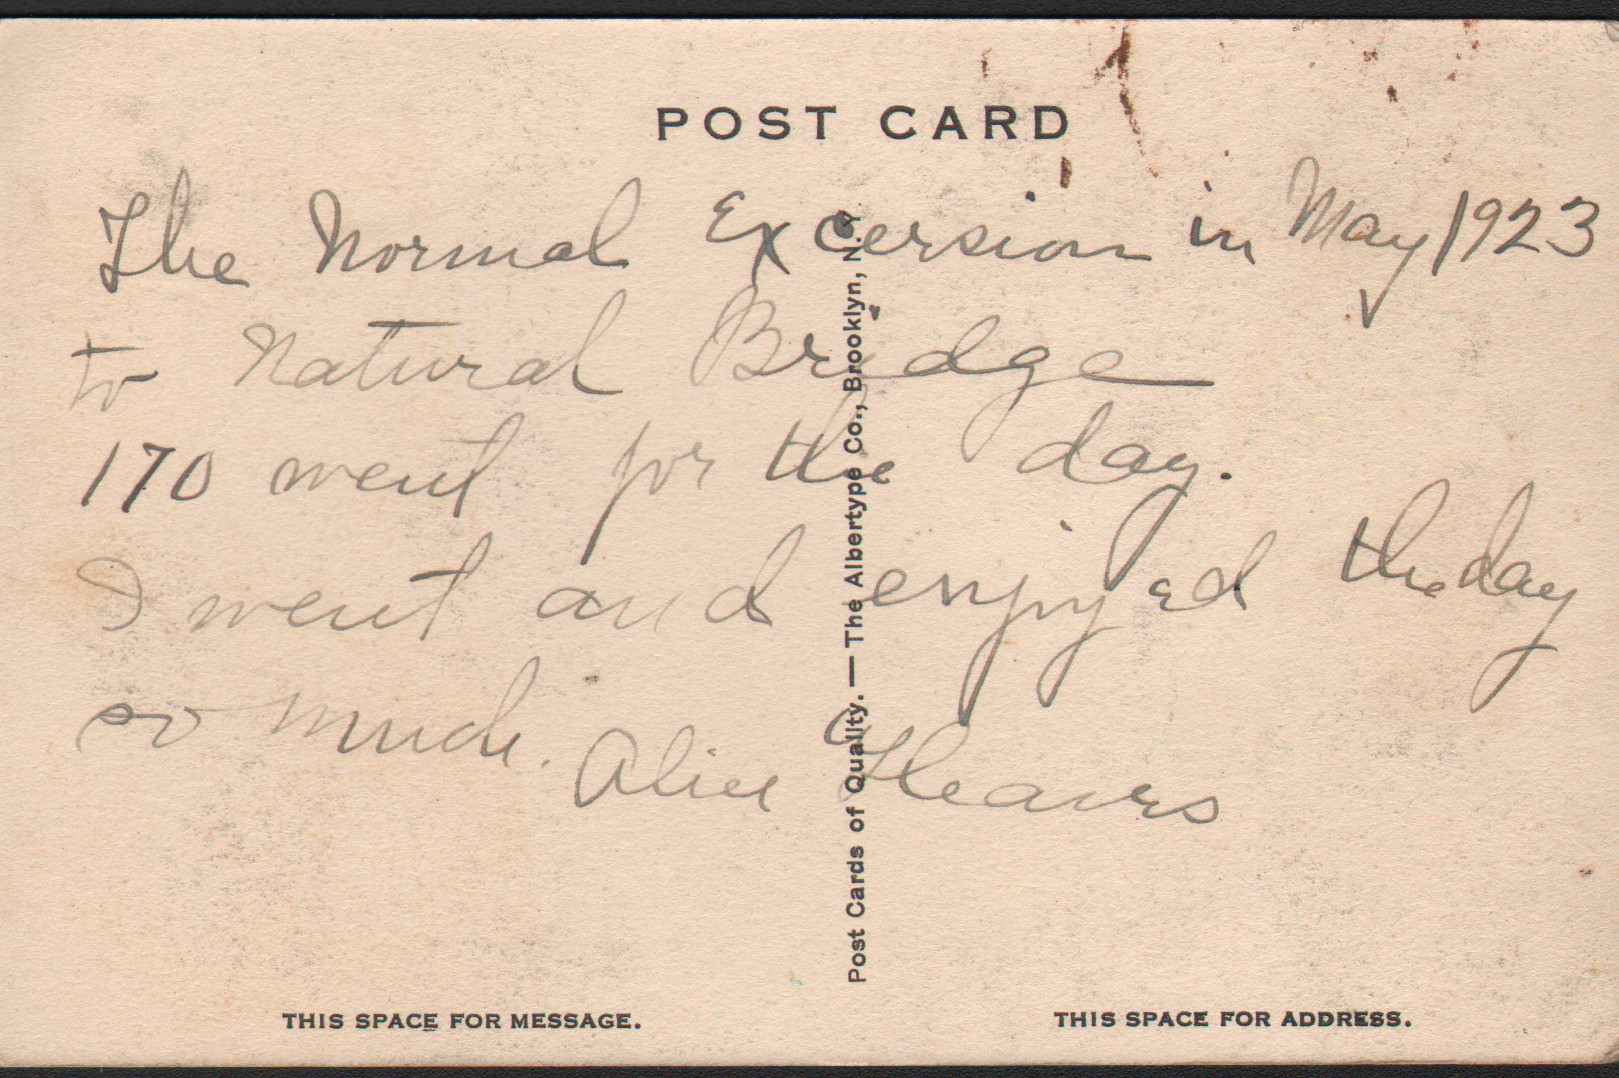 POST CARD
The Normal Excersion in May 1923
to Natural Bridge
170 went for the day.
I went and enjoyed the day
so much. Alice
Post Cards of Quality. — The Albertype Co., Brooklyn, N.Y.
THIS SPACE FOR MESSAGE.
THIS SPACE FOR ADDRESS.